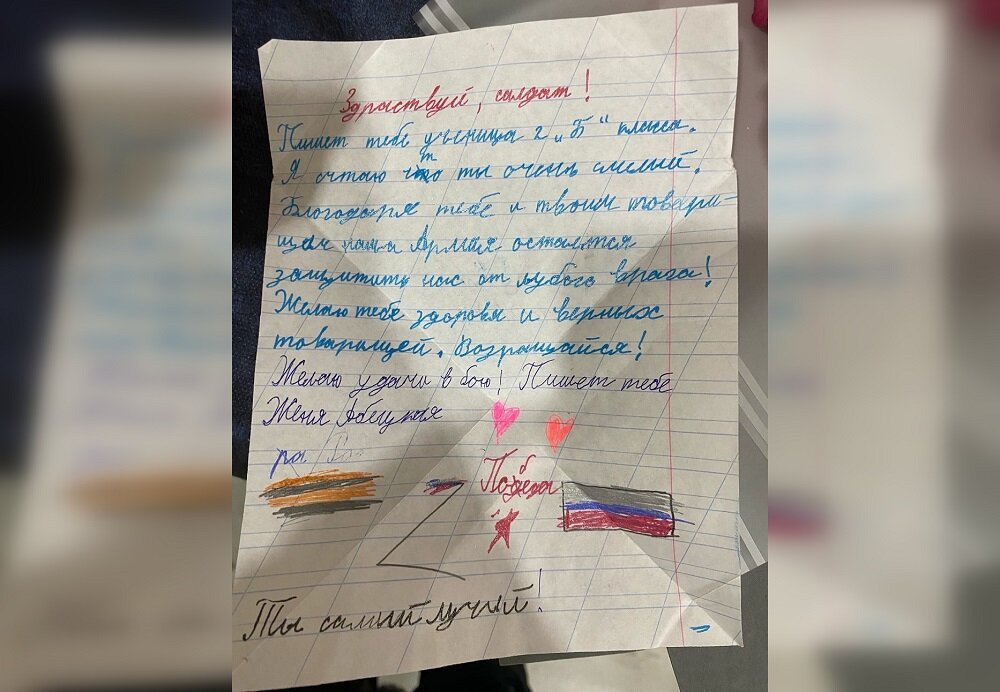 Здраствуй, салдат!
Пишет тебе ученица 2 „Б“ класса.
Я считаю что ты очень смелий.
Благодаря тебе и твоим товари-
щам наша Армия остаётся
защитить нас от любого врага!
Желаю тебе здоровя и верных
товарищей. Возращайся!
Желаю удачи в бою! Пишет тебе
Женя
ра
Z
Победа
Ты самий лучий!